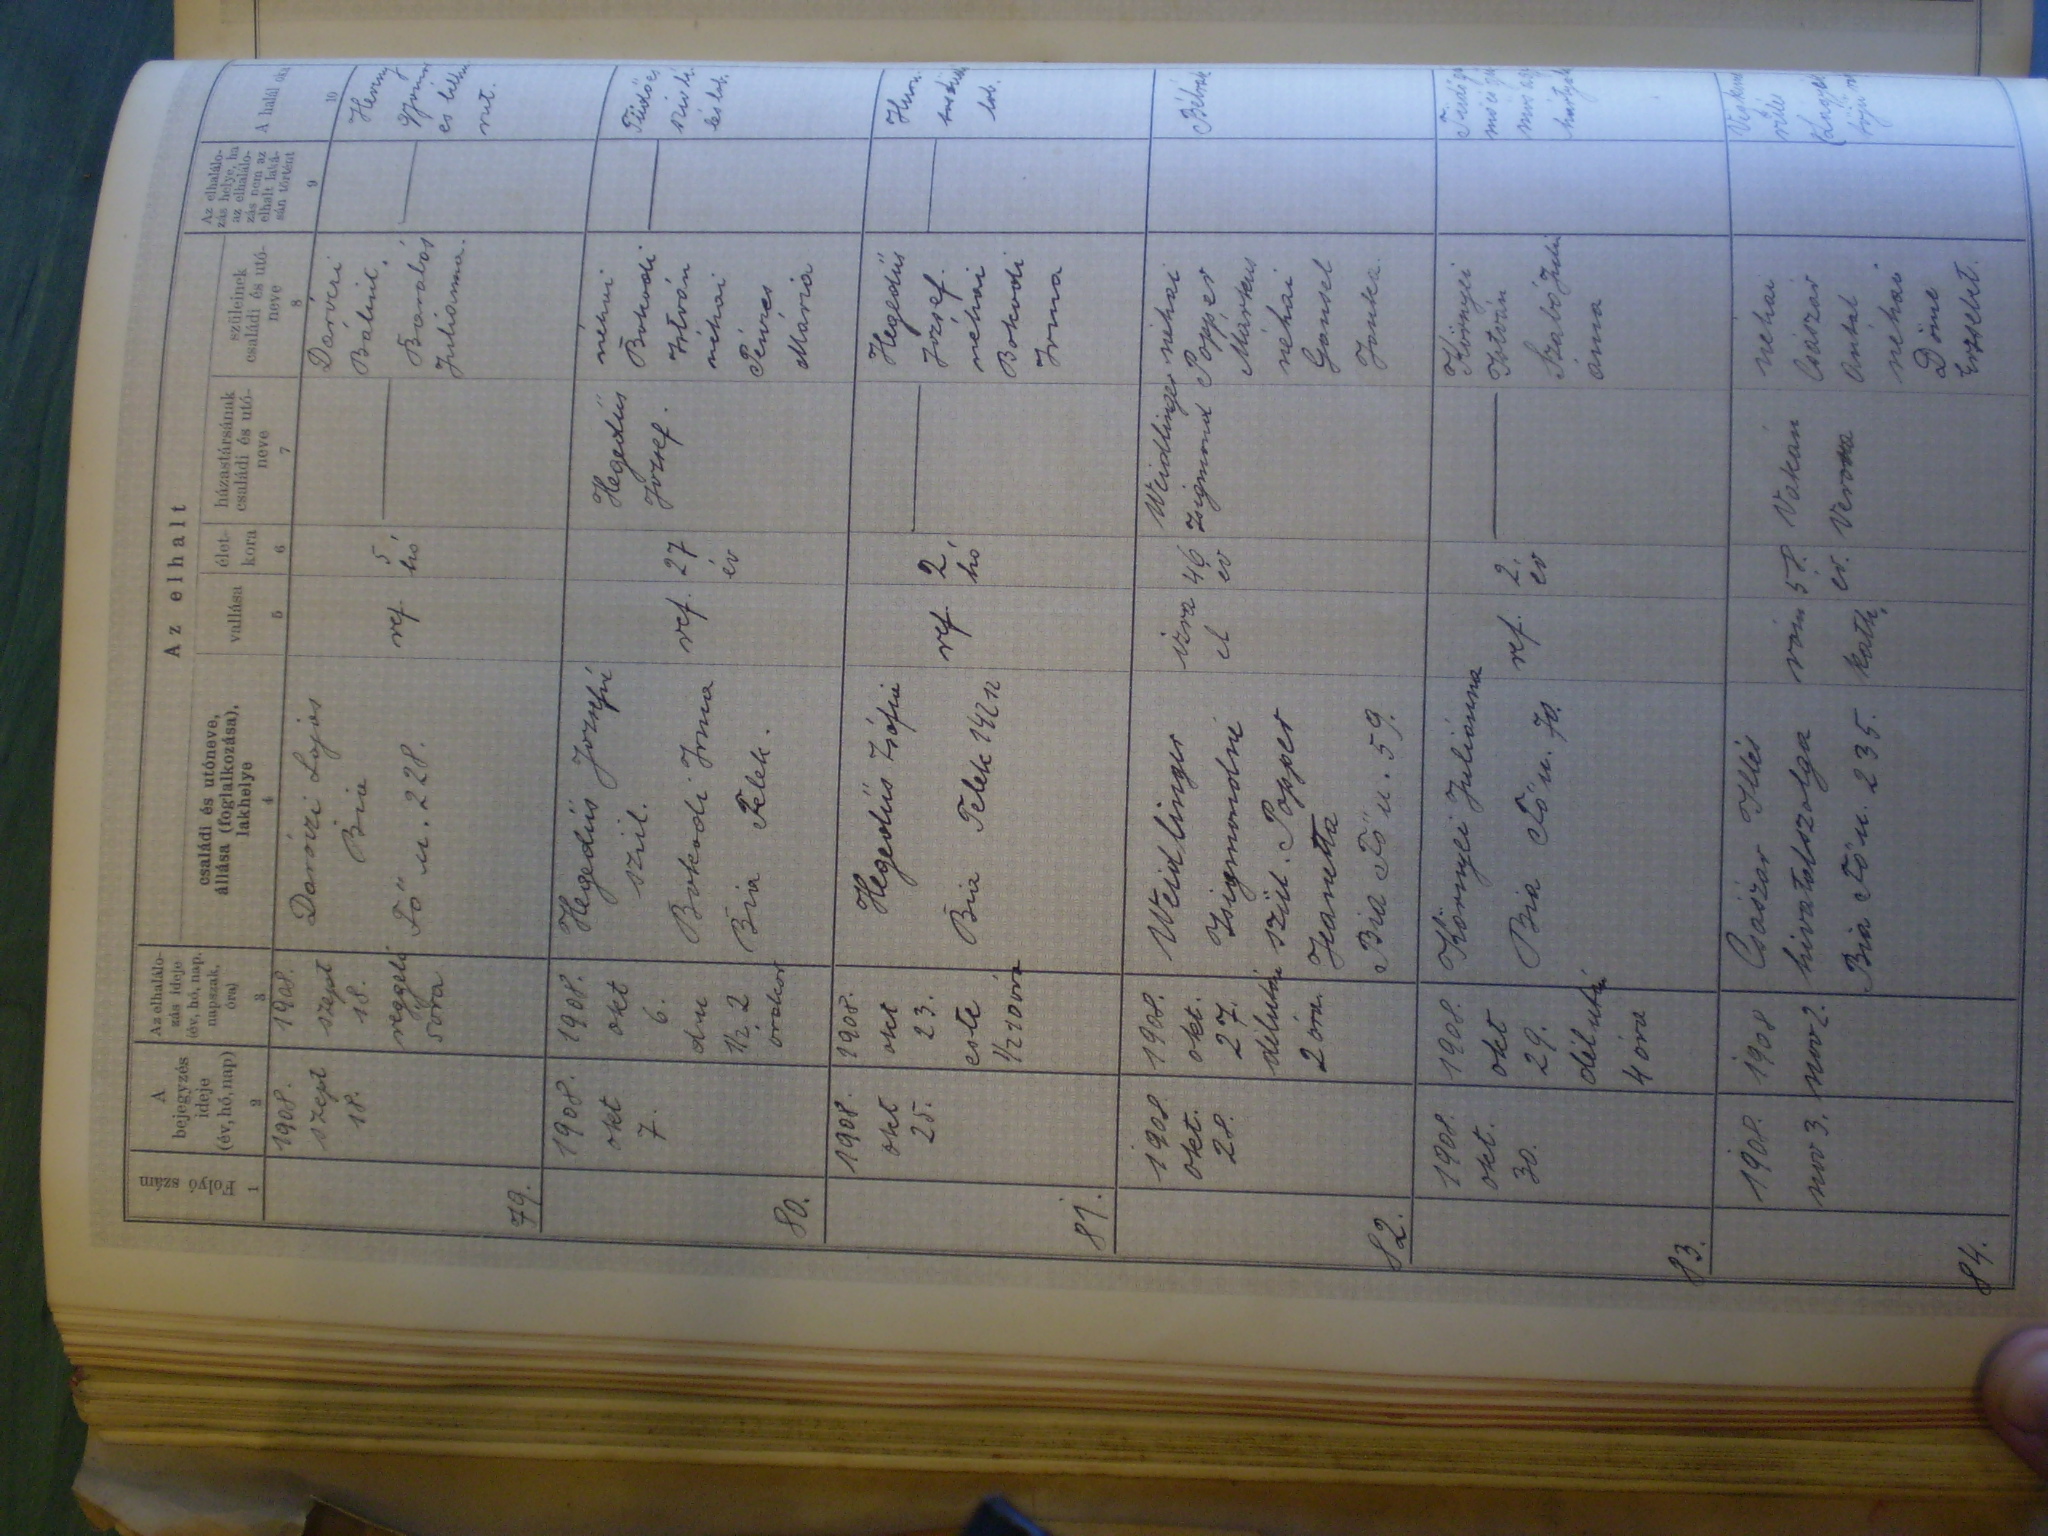 Az elhalt
Folyó szám
A bejegyzés ideje (év, hó, nap)
Az elhalálo-
zás ideje
(év, hó, nap,
napszak,
óra)
családi és utóneve,
állása (foglalkozása),
lakhelye
vallása
élet-
kora
házastársának
családi és utó-
neve
szüleinek
családi és utó-
neve
Az elhalálo-
zás helye, ha
az elhalálo-
zás nem az
elhalt laká-
sán történt
A halál oka
1 2 3 4 5 6 7 8 9 10
79.
1908.
szept
18.
1908.
szept
18.
reggeli
5 óra
Daróczi Lajos
Bia
Fő u. 228.
ref.
5
hó
Daróczi
Bálint,
Barabás
Julianna.
80.
1908.
okt
7.
1908.
okt
6.
du
1/2 2
órakor
Hegedüs Józsefné
szül.
Bokodi Irma
Bia Telek.
ref.
27
év
Hegedüs
József.
néhai
Bokodi
István
néhai
Mária
Tüdő
81.
1908.
okt
25.
1908.
okt
23.
este
1/2 10 óra
Hegedüs Zsófia
Bia Telek 142
ref
2
hó
Hegedüs
József.
néhai
Bokodi
Irma
82.
1908.
okt.
28.
1908.
okt.
27.
délután
2 óra.
Weidlinger
Zsigmondné
szül. Popper
Jeanetta
Bia Fő u. 59.
izra
el
46
év
Weidlinger
Zsigmond
néhai
Popper
Márkus
néhai
Gansel
Janka.
83.
1908.
okt.
30.
1908.
okt
29.
délután
4 óra
Környei Julianna
Bia Fő u. 70.
ref.
2.
év
Környei
István
Szabó Juli
anna
84.
1908.
nov 3.
1908
nov 2.
Császár Illés
hivatalszolga
Bia Fő u. 235.
róm
kath.
58
év.
Vakán
Verona
néhai
Császár
Antal
néhai
Döme
Erzsébet.